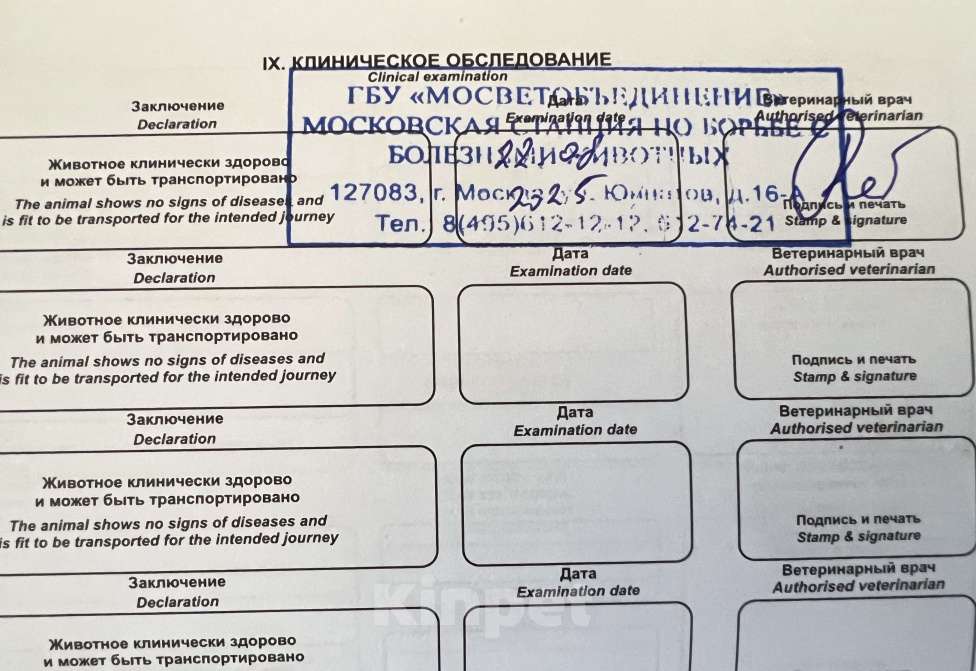 IX. КЛИНИЧЕСКОЕ ОБСЛЕДОВАНИЕ
Clinical examination
Заключение
Declaration
Дата
Examination date
Ветеринарный врач
Authorised veterinarian
ГБУ «МОСВЕТОБЪЕДИНЕНИЕ»
МОСКОВСКАЯ СТАНЦИЯ ПО БОРЬБЕ С
БОЛЕЗНЯМИ ЖИВОТНЫХ
127083, г. Москва, ул. Юннатов, д.16-А
Тел. 8(495)612-12-12, 612-74-21
Животное клинически здорово
и может быть транспортировано
The animal shows no signs of diseases and
is fit to be transported for the intended journey
22 08
2025
Подпись и печать
Stamp & signature
Заключение
Declaration
Дата
Examination date
Ветеринарный врач
Authorised veterinarian
Животное клинически здорово
и может быть транспортировано
The animal shows no signs of diseases and
is fit to be transported for the intended journey
Подпись и печать
Stamp & signature
Заключение
Declaration
Дата
Examination date
Ветеринарный врач
Authorised veterinarian
Животное клинически здорово
и может быть транспортировано
The animal shows no signs of diseases and
is fit to be transported for the intended journey
Подпись и печать
Stamp & signature
Заключение
Declaration
Дата
Examination date
Ветеринарный врач
Authorised veterinarian
Животное клинически здорово
и может быть транспортировано
Kinpet